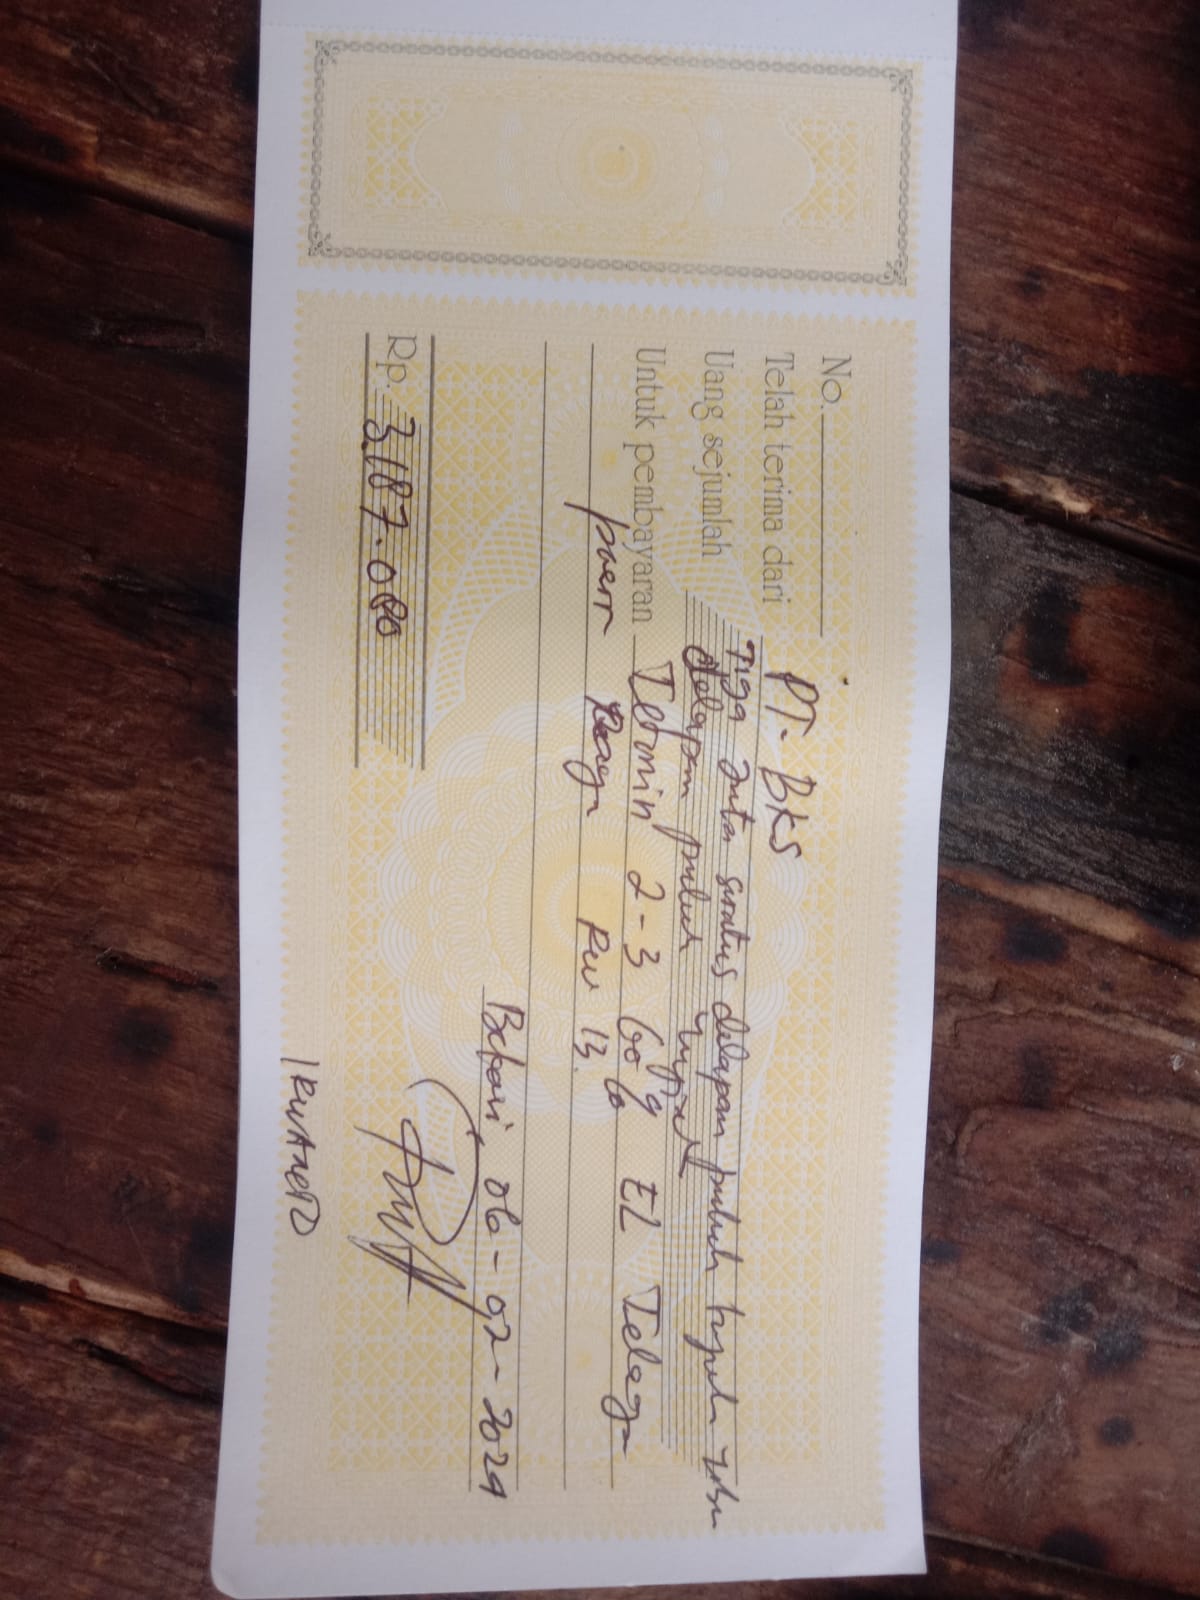 No.
Telah terima dari PT. BKS
Uang sejumlah Tiga Juta seratus delapan puluh tujuh ribu
delapan puluh rupiah
Untuk pembayaran Termin 2-3 60% EL Telaga
RW 13.
Rp. 3.187.080
Bekasi 06-02-2024